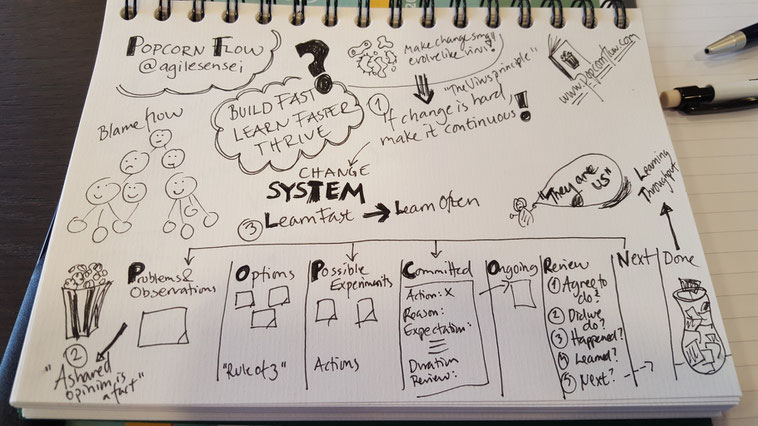 POPCORN FLOW
@agilesensei
?
BUILD FAST
LEARN FASTER
THRIVE
Make change small
evolve like virus?
"The Virus principle"
① If change is hard,
make it continuous!
www.Popcornflow.com
Blame flow
CHANGE
SYSTEM
③ Learn Fast → Learn Often
"They are
US"
Learning
Throughput
Problems &
Observations
Options
"Rule of 3"
Possible
Experiments
Actions
Committed
Action: X
Reason:
Expectation:
Duration
Review:
Ongoing
Review
① Agree to
do?
② Did we
do?
③ Happened?
④ Learned?
⑤ Next?
Next
Done
②
"A shared
opinion is
a fact"